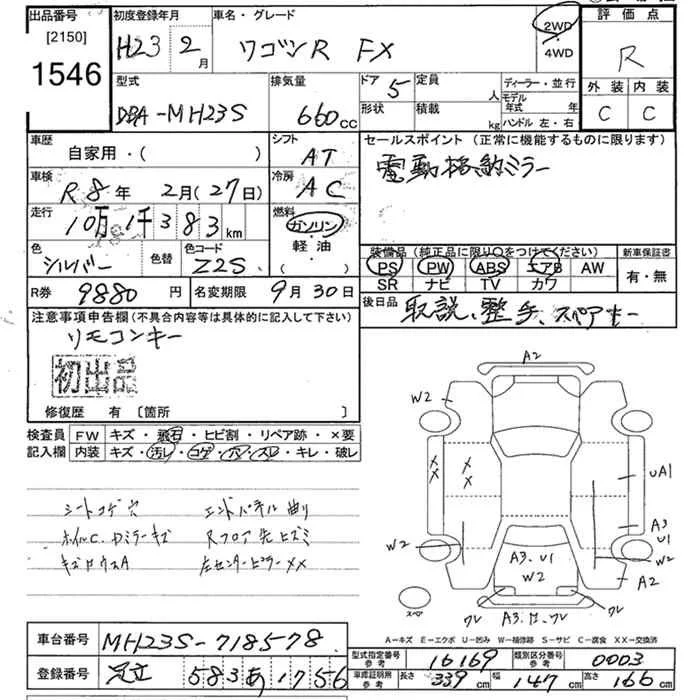 出品番号
[2150]
1546
初度登録年月
H23 2月
車名・グレード
ワゴンR FX
2WD
・
4WD
評価点
R
外装 内装
C C
型式
DBA-MH23S
排気量
660cc
ドア 5
定員 人
形状
積載 kg
ディーラー・並行
モデル年式 年
ハンドル 左・右
車歴
自家用・( )
車検
R8年 2月(27日)
走行
10万1千383km
色
シルバー
色替
色コード
Z2S
シフト
AT
冷房
AC
燃料
ガソリン
・
軽油
( )
セールスポイント(正常に機能するものに限ります)
電動格納ミラー
装備品(純正品に限り○をつけてください)
PS PW ABS エアB AW
SR ナビ TV カワ
新車保証書
有・無
R券 9880円
名変期限 9月30日
後日品 取説、整手、スペアキー
注意事項申告欄(不具合内容等は具体的に記入して下さい)
リモコンキー
初出品
修復歴 有 [箇所 ]
検査員記入欄
FW キズ・飛石・ヒビ割・リペア跡・×要
内装 キズ・汚レ・コゲ・穴・スレ・キレ・破レ
シートコゲ穴 エンドパネル曲り
ホイルC.Dミラーキズ Rフロア先ヒズミ
左センターピラーXX
A2
W2
XX
XX
UA1
A3
U1
W2
W2
A2
A3.U1
W2
ワレ
ワレ
スペア
A-キズ E-エクボ U-凹み W-補修跡 S-サビ C-腐食 XX-交換済
車台番号 MH23S-718578
登録番号 足立 583 あ 1756
型式指定番号 参考 16169
類別区分番号 参考 0003
車庫証明用 参考 長さ 339cm 幅 147cm 高さ 166cm